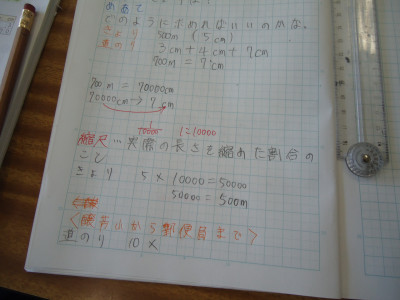 めあて
どのように求めればいいのかな。
きょり 500m (5cm)
道のり 3cm+4cm+7cm
700m=7cm
700m=70000cm
70000cm→7cm
1/10000 1:10000
縮尺…実際の長さを縮めた割合の
こと
きょり 5×10000=50000
50000=500m
小から郵便局まで>
道のり 10×